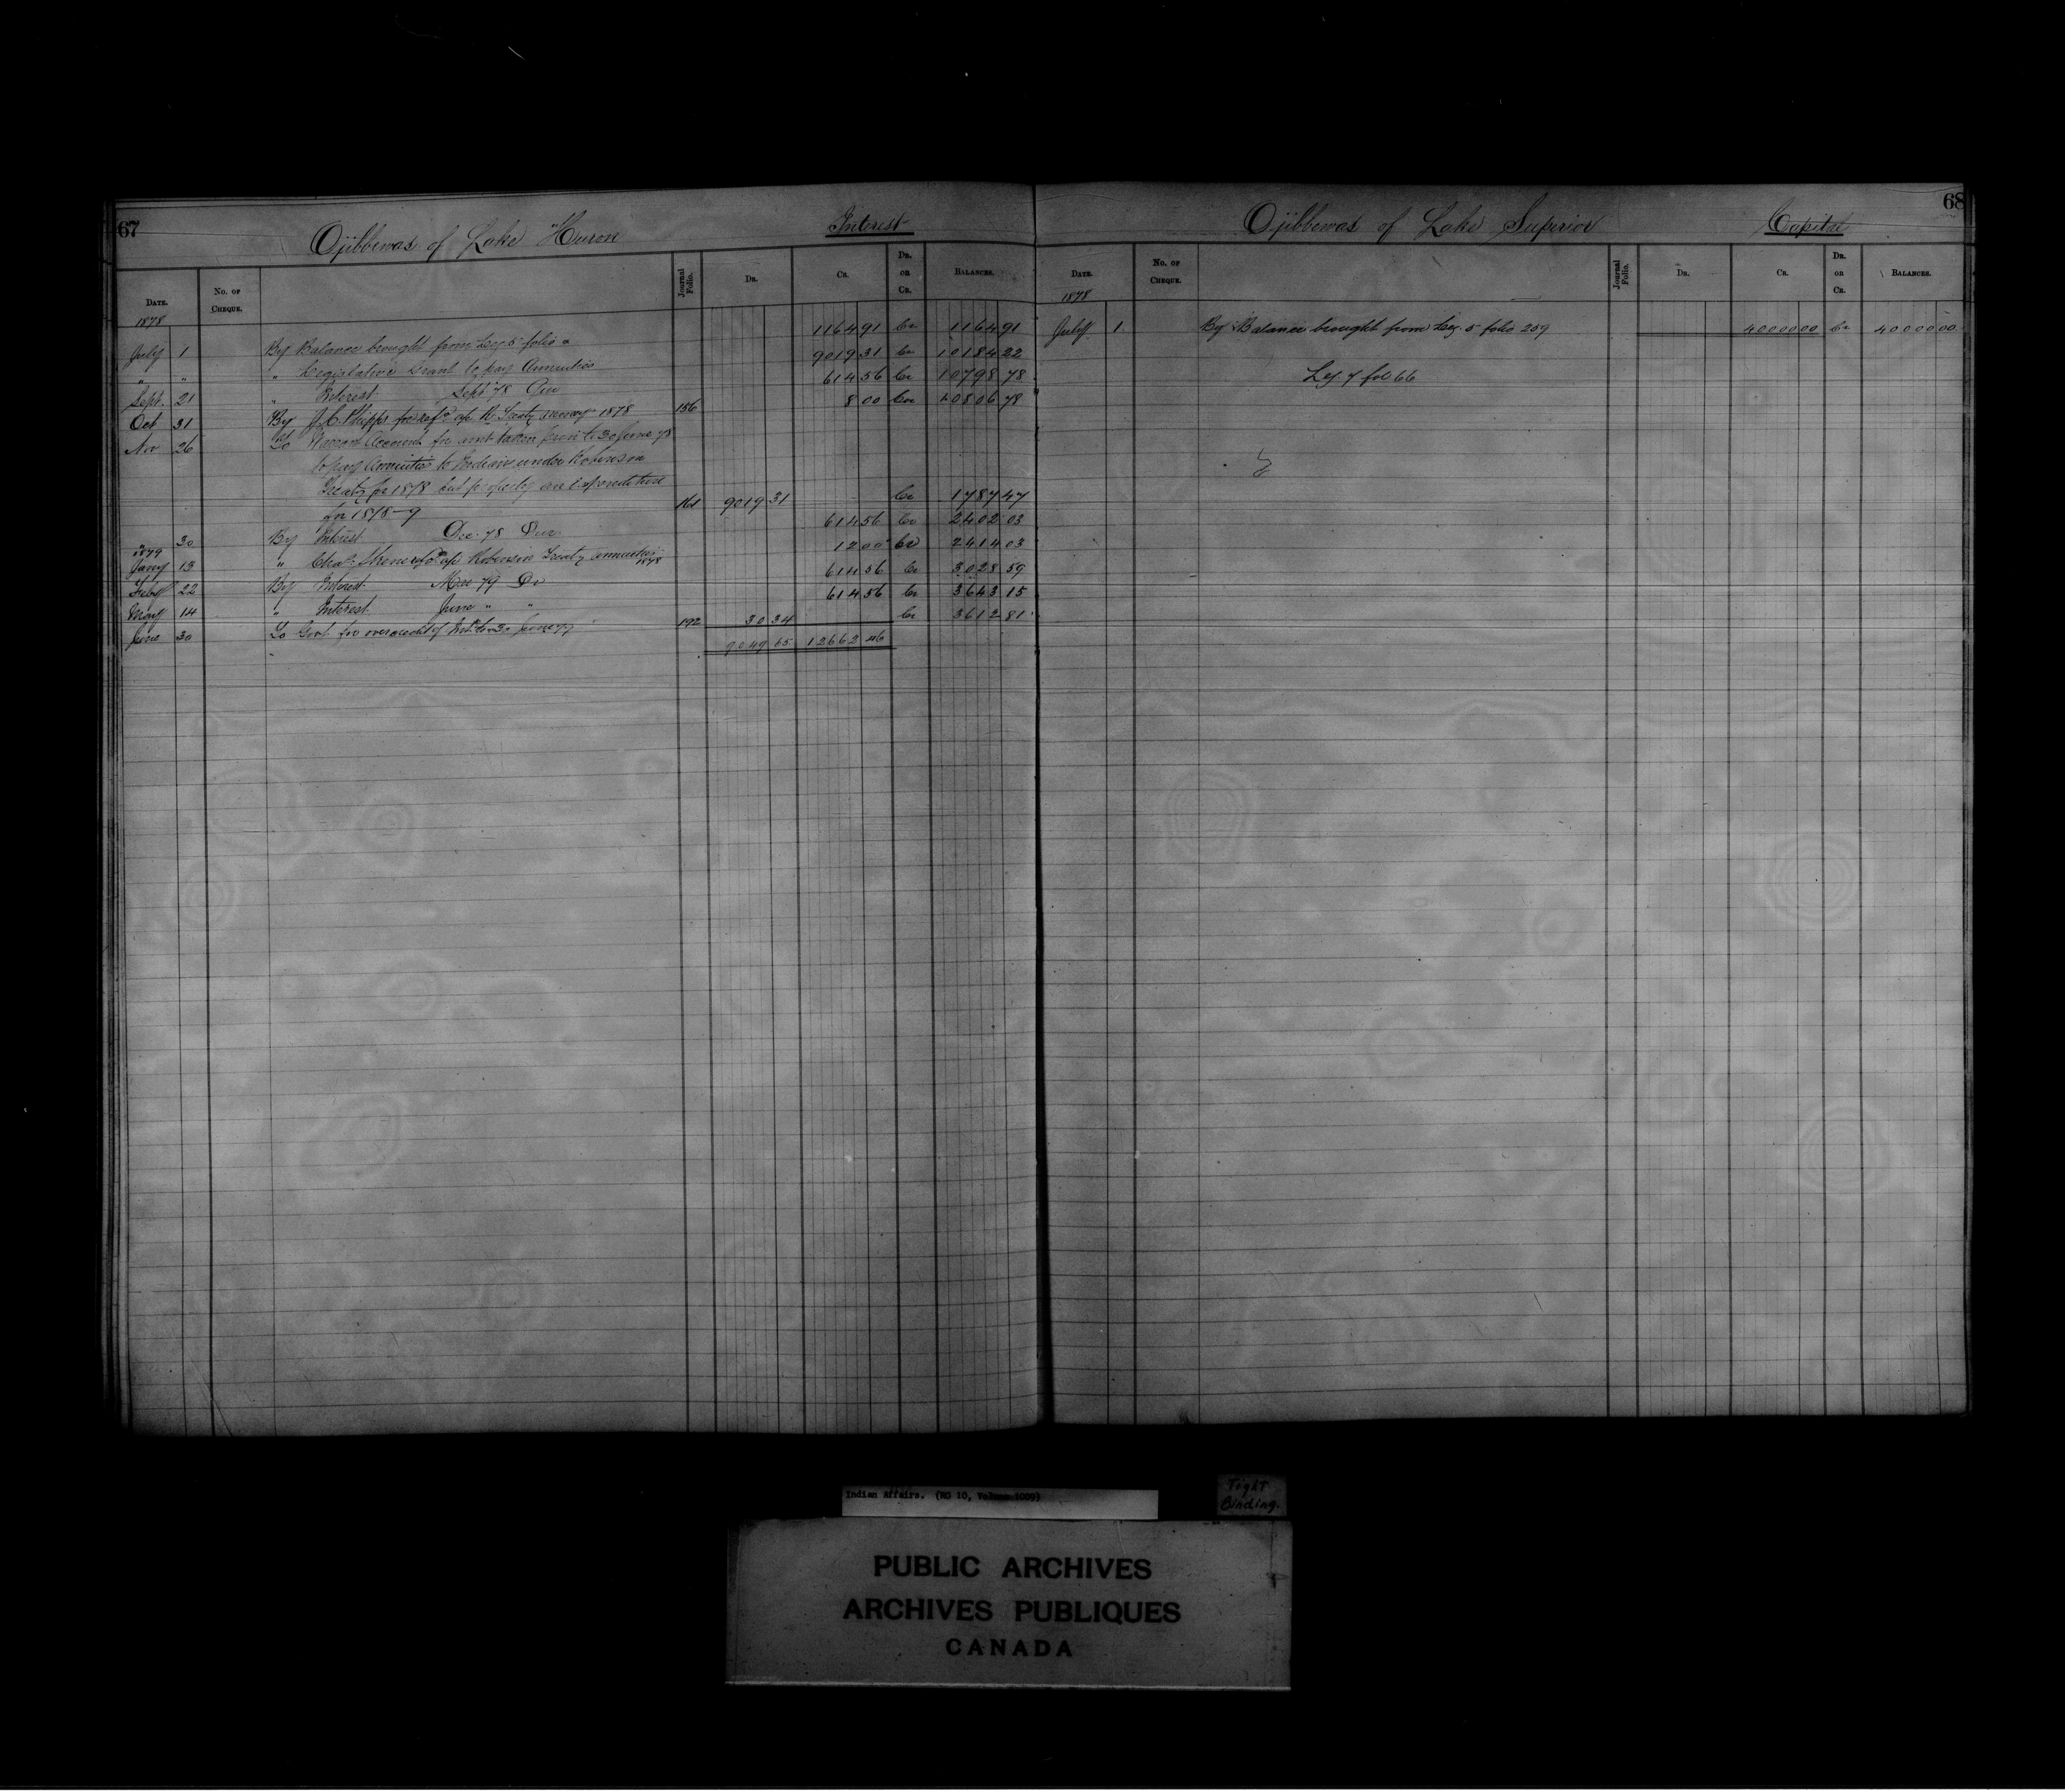 67
Ojibbewas of Lake Huron
Interest
DATE. No. OF CHEQUE. Journal Folio. DR. CR. DR. OR CR. BALANCES.
1878
July 1 By Balance brought from Leg 5 folio 1164 91 Cr 1164 91
" " " Legislative Grant to pay Annuities 9019 31 Cr 10184 22
Sept. 21 " Interest Sept 78 Qur 614 56 Cr 10798 78
Oct 31 By J.C. Phipps for refd a/c R. Treaty 1878 156 8 00 Cr 10806 78
Nov 26 To Warrant Account for amt taken prior to 30 June 78
to pay Annuities to Indians under Robinson
Treaty for 1878 but properly an expenditure
for 1878-9 161 9019 31 Cr 1787 47
" 30 By Interest Dec. 78 Qur 614 56 Cr 2402 03
1879
Jany 13 " Chas. refd a/c Robinson Treaty annuities 1878 12 00 Cr 2414 03
Feby 22 By Interest Mar 79 Do 614 56 Cr 3028 59
May 14 " Interest June " " 614 56 Cr 3643 15
June 30 To Govt for over credit of Int. to 30 June 77 192 30 34 Cr 3612 81
9049 65 12662 46
68
Ojibbewas of Lake Superior
Capital
DATE. No. OF CHEQUE. Journal Folio. DR. CR. DR. OR CR. BALANCES.
1878
July 1 By Balance brought from Leg. 5 folio 259 40000 00 Cr 40000 00
Leg. 7 fol 66
Indian Affairs. (RG 10, Volume 1009)
Tight
Binding.
PUBLIC ARCHIVES
ARCHIVES PUBLIQUES
CANADA